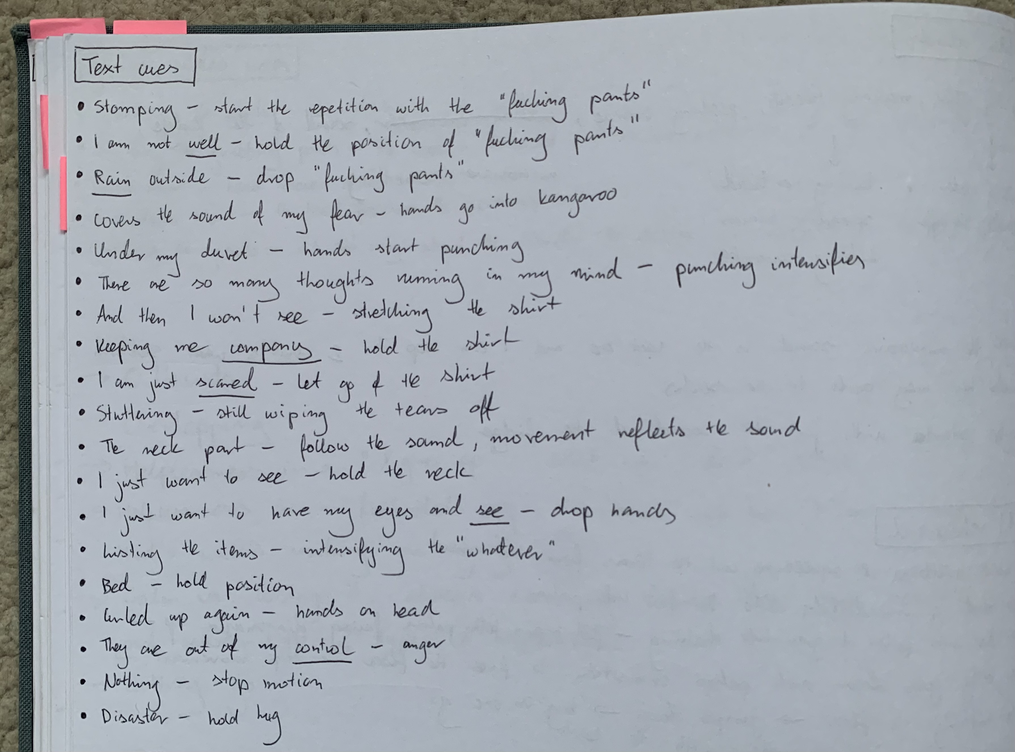 Text cues
• Stomping – start the repetition with the "fucking pants"
• I am not well – hold the position of "fucking pants"
• Rain outside – drop "fucking pants"
• Covers the sound of my fear – hands go into kangaroo
• Under my duvet – hands start punching
• There are so many thoughts running in my mind – punching intensifies
• And then I won't see – stretching the shirt
• Keeping me company – hold the shirt
• I am just scared – let go of the shirt
• Stuttering – still wiping the tears off
• The neck part – follow the sound, movement reflects the sound
• I just want to see – hold the neck
• I just want to have my eyes and see – drop hands
• Listing the items – intensifying the "whatever"
• Bed – hold position
• Curled up again – hands on head
• They are out of my control – anger
• Nothing – stop motion
• Disaster – hold hug